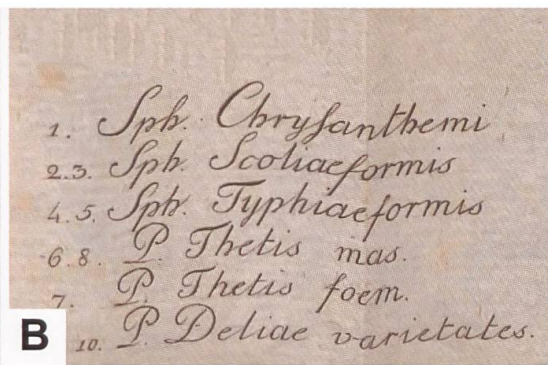 1. Sph. Chrysanthemi
2.3. Sph. Scoliaeformis
4.5. Sph. Typhiaeformis
6.8. P. Thetis mas.
7. P. Thetis foem.
10. P. Deliae varietates.
B